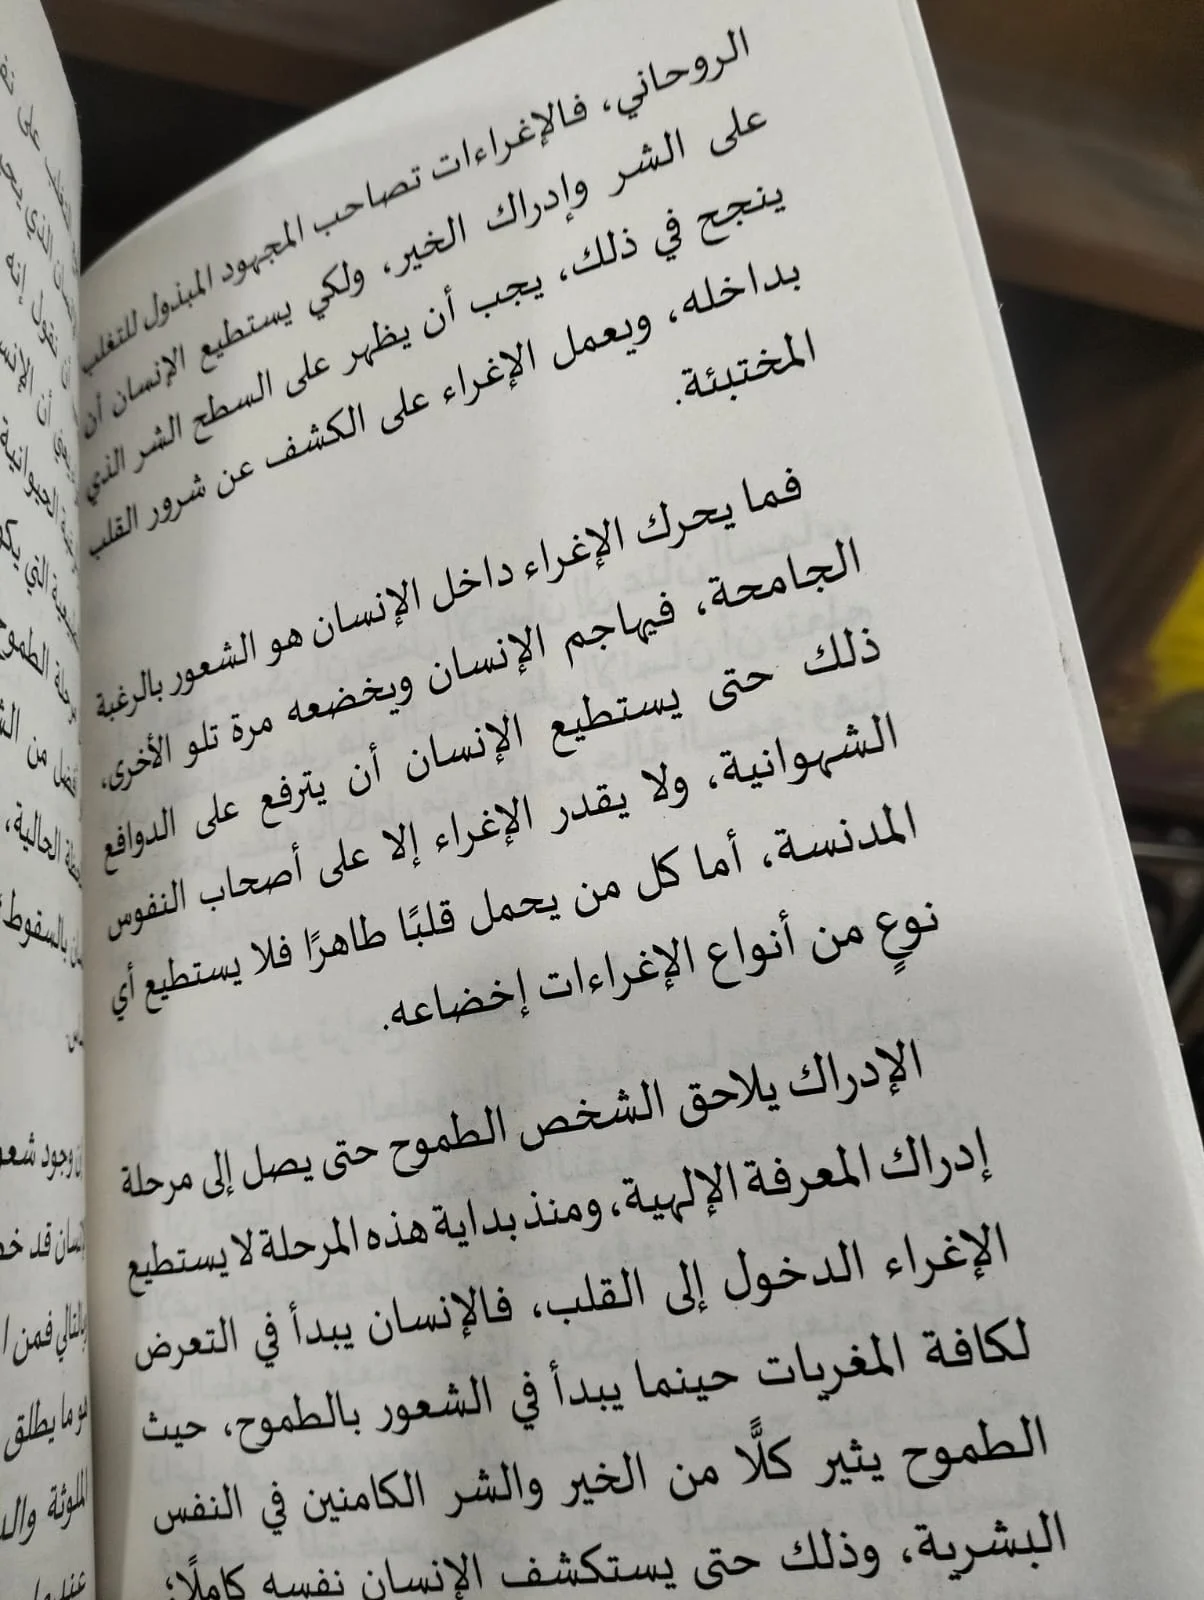 الروحاني، فالإغراءات تصاحب المجهود المبذول للتغلب
على الشر وإدراك الخير، ولكي يستطيع الإنسان أن
ينجح في ذلك، يجب أن يظهر على السطح الشر الذي
بداخله، ويعمل الإغراء على الكشف عن شرور القلب
المختبئة.
فما يحرك الإغراء داخل الإنسان هو الشعور بالرغبة
الجامحة، فيهاجم الإنسان ويخضعه مرة تلو الأخرى،
ذلك حتى يستطيع الإنسان أن يترفع على الدوافع
الشهوانية، ولا يقدر الإغراء إلا على أصحاب النفوس
المدنسة، أما كل من يحمل قلبًا طاهرًا فلا يستطيع أي
نوعٍ من أنواع الإغراءات إخضاعه.
الإدراك يلاحق الشخص الطموح حتى يصل إلى مرحلة
إدراك المعرفة الإلهية، ومنذ بداية هذه المرحلة لا يستطيع
الإغراء الدخول إلى القلب، فالإنسان يبدأ في التعرض
لكافة المغريات حينما يبدأ في الشعور بالطموح، حيث
الطموح يثير كلًّا من الخير والشر الكامنين في النفس
البشرية، وذلك حتى يستكشف الإنسان نفسه كاملًا؛